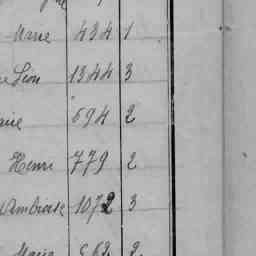 Marie 434 1
Léon 1344 3
aire 594 2
Henri 779 2
Ambroise 1072 3
Marie 562 2